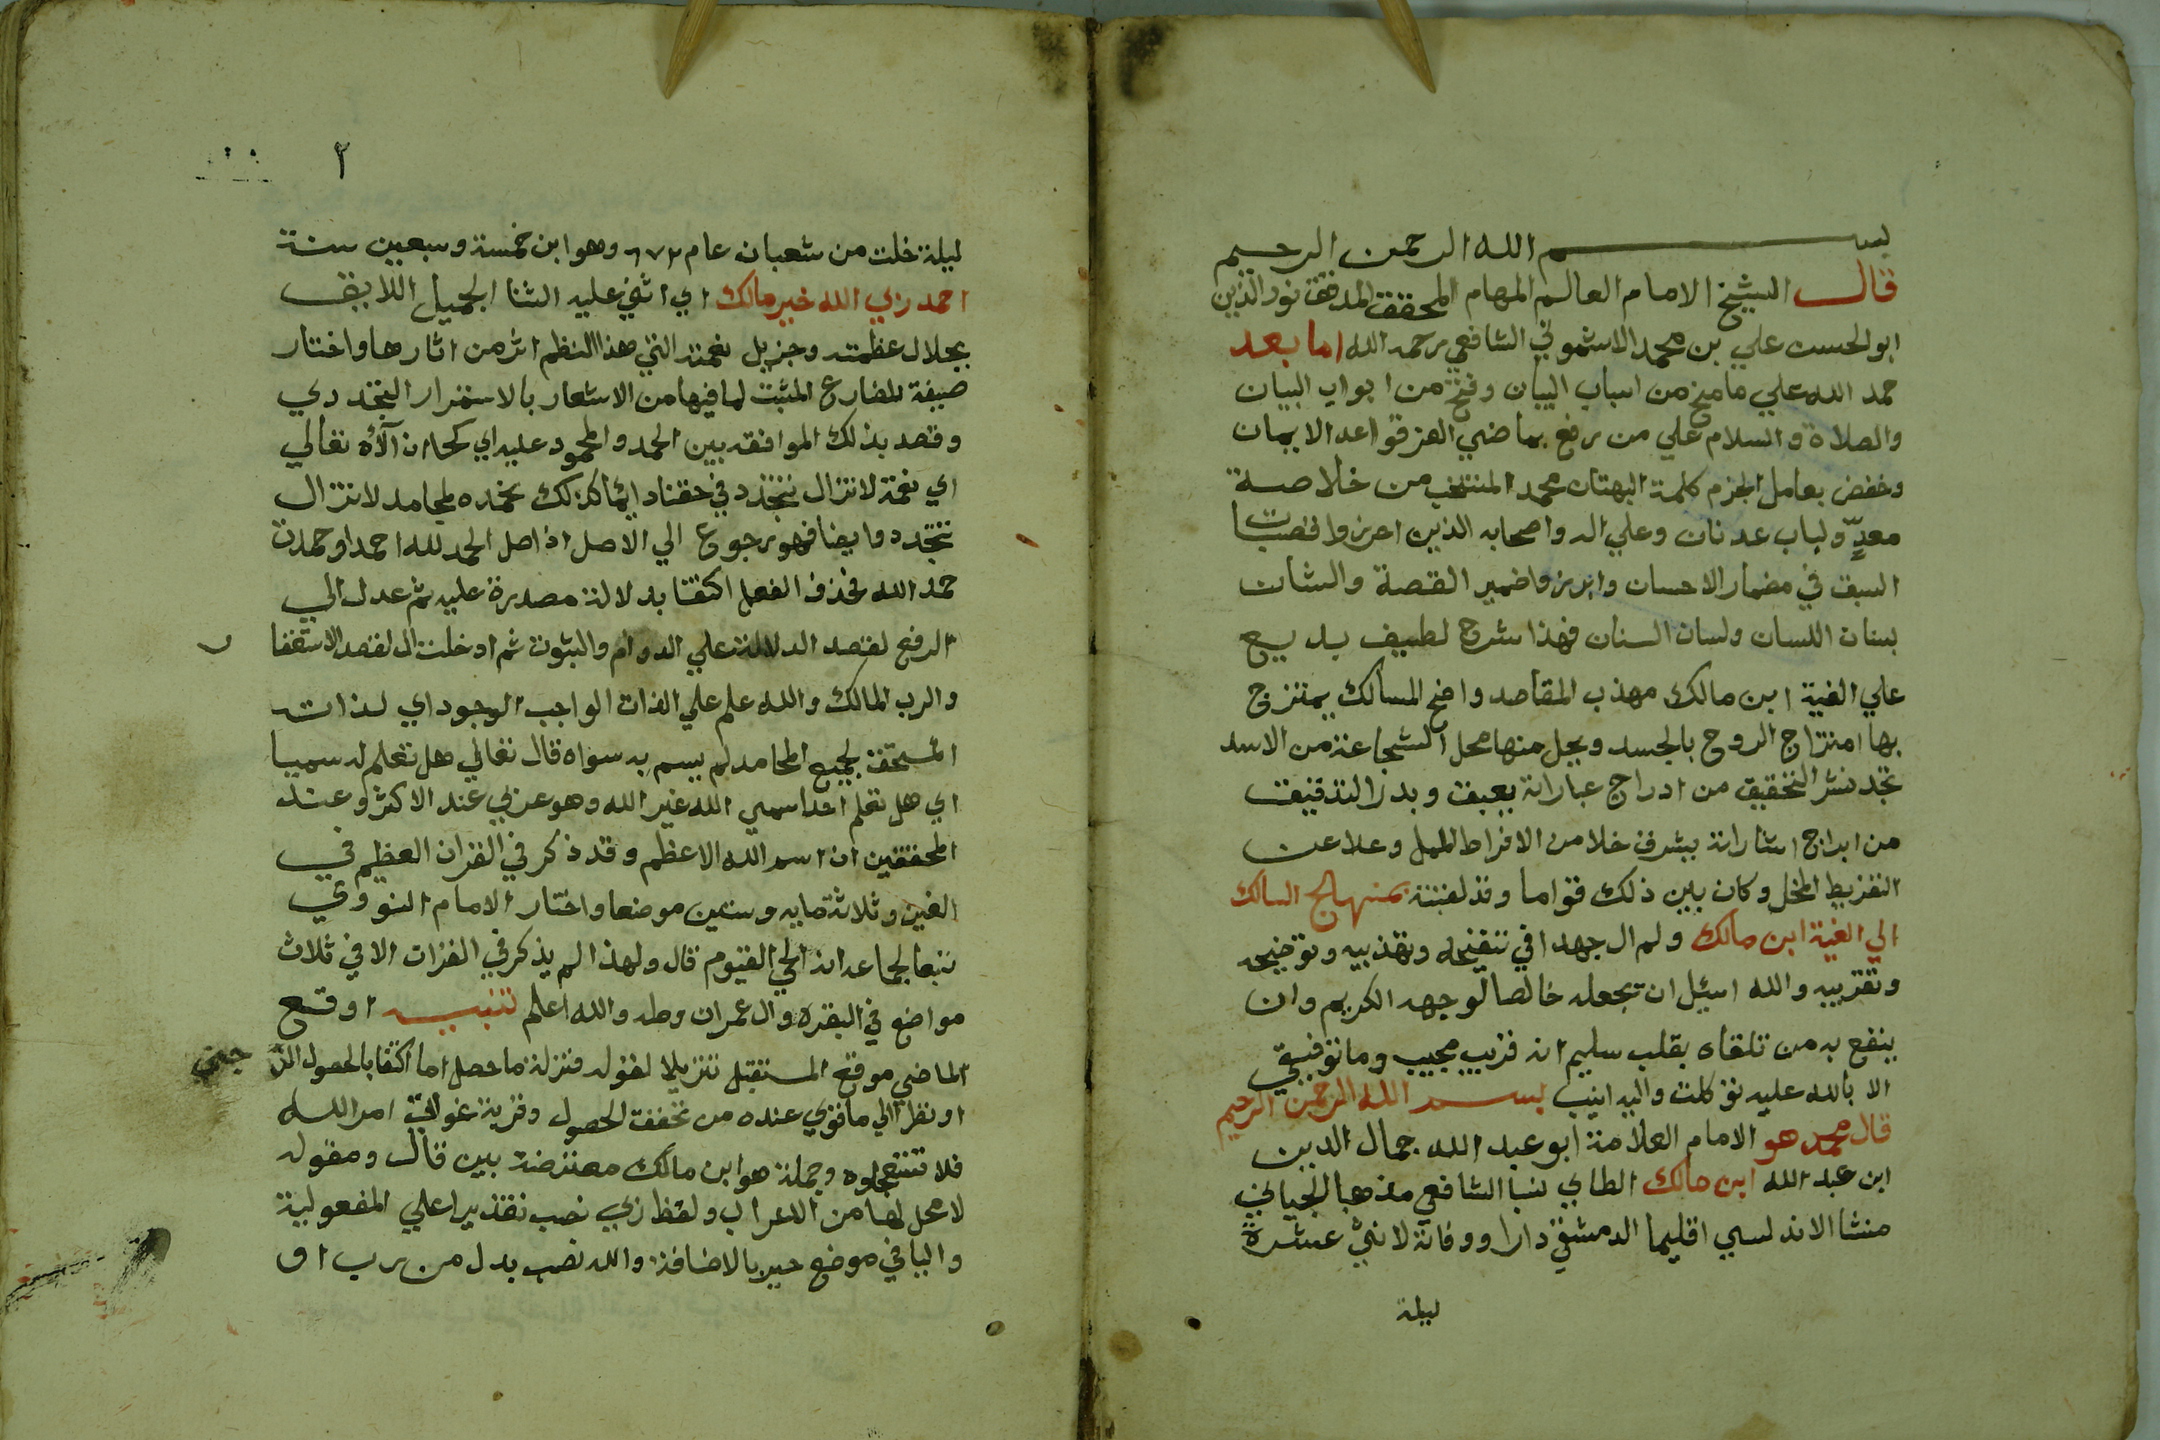 بسم الله الرحمن الرحيم
قال الشيخ الامام العالم الهمام المحقق المدقق نور الدين
ابو الحسن علي بن محمد الاشموني الشافعي رحمه الله اما بعد
حمد الله علي ما منح من اسباب البيان وفتح من ابواب البيان
والصلاة والسلام علي من رفع بماضي العز قواعد الايمان
وخفض بعامل الجزم كلمة البهتان محمد المنتخب من خلاصة
معدٍّ ولباب عدنان وعلي اله واصحابه الذين احرزوا قصبات
السبق في مضمار الاحسان وابرزوا ضمير القصة والشان
بسنان اللسان ولسان السنان فهذا شرح لطيف بديع
علي الفية ابن مالك مهذب المقاصد واضح المسالك يمتزج
بها امتزاج الروح بالجسد ويحل منها محل الشجاعة من الاسد
تجد نشر التحقيق من ادراج عباراته يعبق وبدر التدقيق
من ابراج اشاراته يشرق خلا من الافراط الممل وعلا عن
التفريط المخل وكان بين ذلك قواما وقد لقبته بمنهاج السالك
الي الفية ابن مالك ولم ال جهدا في تنقيحه وتهذيبه وتوضيحه
وتقريبه والله اسئل ان يجعله خالصا لوجهه الكريم وان
ينفع به من تلقاه بقلب سليم انه قريب مجيب وما توفيقي
الا بالله عليه توكلت واليه انيب بسم الله الرحمن الرحيم
قال محمد هو الامام العلامة ابو عبد الله جمال الدين
ابن عبد الله ابن مالك الطاي نسبا الشافعي مذهبا الجياني
منشا الاندلسي اقليما الدمشقي دارا ووفاتة لاثني عشرة
ليلة
٢
ليلة خلت من شعبان عام ٦٧٢ وهو ابن خمسة وسبعين سنة
احمد ربي الله خير مالك اي اثني عليه الثنا الجميل اللايق
بجلال عظمته وجزيل نعمته التي هذا النظم اثر من اثارها واختار
صيغة المضارع المثبت لما فيها من الاشعار بالاستمرار التجددي
وقصد بذلك الموافقه بين الحمد والمحمود عليه اي كما ان آلآؤه تعالي
اي نعمة لا تزال تتجدد في حقنا دايما كذلك نحمده بمحامد لا تزال
تتجدد وايضا فهو رجوع الي الاصل اذ اصل الحمد لله احمد او حمدت
حمد الله فحذف الفعل اكتفا بدلالة مصدره عليه ثم عدل الي
الرفع لقصد الدلالة علي الدوام والثبوت ثم ادخلت ال لقصد الاستغفا
ر
والرب المالك والله علم علي الذات الواجب الوجود اي لذاته
المستحق لجميع المحامد لم يسم به سواه قال تعالي هل تعلم له سميا
اي هل تعلم احدا سمي الله غير الله وهو عربي عند الاكثر وعند
المحققين ان اسم الله الاعظم وقد ذكر في القران العظيم في
الفين وثلاثة مايه وستين موضعا واختار الامام النووي
تبعا لجماعه انه الحي القيوم قال ولهذا لم يذكر في القران الا في ثلاث
مواضع في البقره وال عمران وطه والله اعلم تنبيه اوقع
الماضي موقع المستقبل تنزيلا لقوله منزلة ما حصل اما اكتفا بالحصول الذ هني
او نظرا الي ما قوي عنده من تحقق الحصول وقربه نحو اتي امر الله
فلا تستعجلوه وجملة هو ابن مالك معترضة بين قال ومقوله
لا محل لها من الاعراب ولفظ ربي نصب تقديرا علي المفعولية
واليا في موضع جر بالاضافة والله نصب بدل من رب او